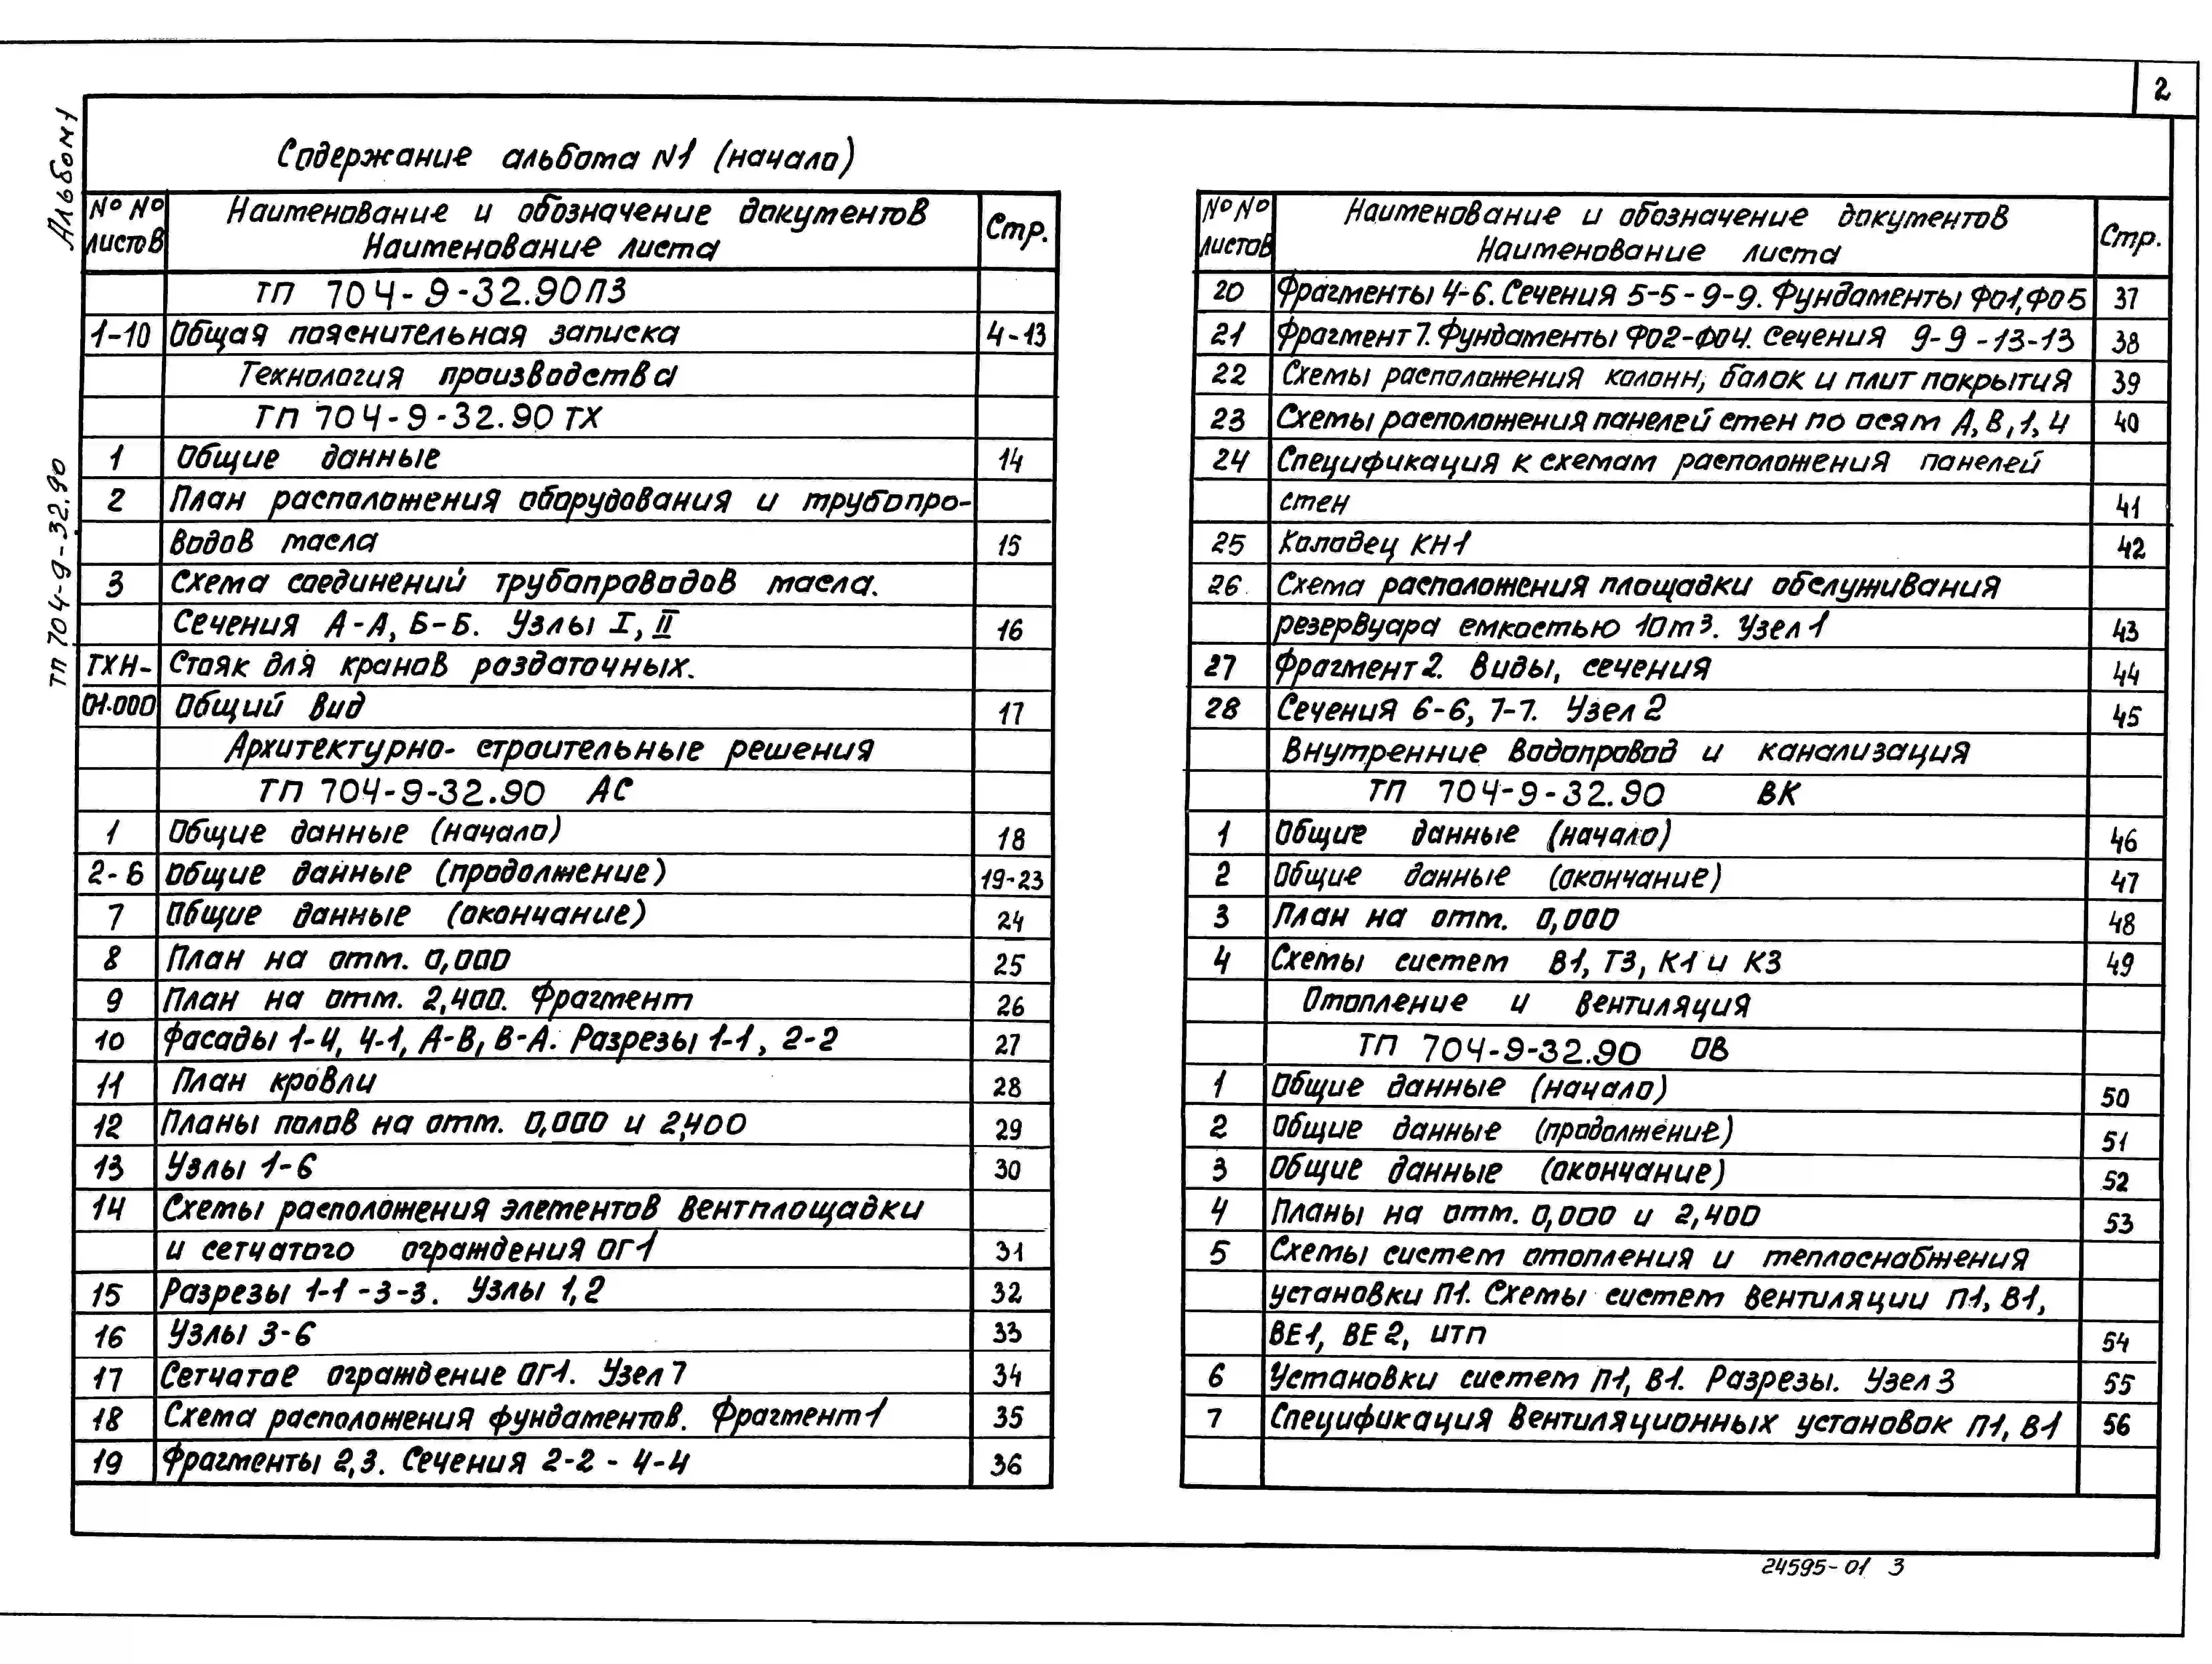 2
Альбом 1
ТП 704-9-32.90
Содержание альбома N1 (начало)
№ № листов | Наименование и обозначение документов Наименование листа | Стр.
ТП 704-9-32.90ПЗ
1-10 Общая пояснительная записка 4-13
Технология производства
ТП 704-9-32.90 ТХ
1 Общие данные 14
2 План расположения оборудования и трубопро-
водов масла 15
3 Схема соединений трубопроводов масла.
Сечения А-А, Б-Б. Узлы I, II 16
ТХН- Стояк для кранов раздаточных.
01.000 Общий вид 17
Архитектурно- строительные решения
ТП 704-9-32.90 АС
1 Общие данные (начало) 18
2-6 Общие данные (продолжение) 19-23
7 Общие данные (окончание) 24
8 План на отм. 0,000 25
9 План на отм. 2,400. Фрагмент 26
10 Фасады 1-4, 4-1, А-В, В-А. Разрезы 1-1, 2-2 27
11 План кровли 28
12 Планы полов на отм. 0,000 и 2,400 29
13 Узлы 1-6 30
14 Схемы расположения элементов вентплощадки
и сетчатого ограждения ОГ1 31
15 Разрезы 1-1 -3-3. Узлы 1,2 32
16 Узлы 3-6 33
17 Сетчатое ограждение ОГ1. Узел 7 34
18 Схема расположения фундаментов. Фрагмент 1 35
19 Фрагменты 2,3. Сечения 2-2 - 4-4 36
№ № листов | Наименование и обозначение документов Наименование листа | Стр.
20 Фрагменты 4-6. Сечения 5-5 - 9-9. Фундаменты Ф01, Ф05 37
21 Фрагмент 7. Фундаменты Ф02-Ф04. Сечения 9-9 -13-13 38
22 Схемы расположения колонн, балок и плит покрытия 39
23 Схемы расположения панелей стен по осям А, В, 1, 4 40
24 Спецификация к схемам расположения панелей
стен 41
25 Колодец КН1 42
26 Схема расположения площадки обслуживания
резервуара емкостью 10м3. Узел 1 43
27 Фрагмент 2. Виды, сечения 44
28 Сечения 6-6, 7-7. Узел 2 45
Внутренние водопровод и канализация
ТП 704-9-32.90 ВК
1 Общие данные (начало) 46
2 Общие данные (окончание) 47
3 План на отм. 0,000 48
4 Схемы систем В1, Т3, К1 и К3 49
Отопление и вентиляция
ТП 704-9-32.90 ОВ
1 Общие данные (начало) 50
2 Общие данные (продолжение) 51
3 Общие данные (окончание) 52
4 Планы на отм. 0,000 и 2,400 53
5 Схемы систем отопления и теплоснабжения
установки П1. Схемы систем вентиляции П1, В1,
ВЕ1, ВЕ2, ИТП 54
6 Установки систем П1, В1. Разрезы. Узел 3 55
7 Спецификация вентиляционных установок П1, В1 56
24595-01 3